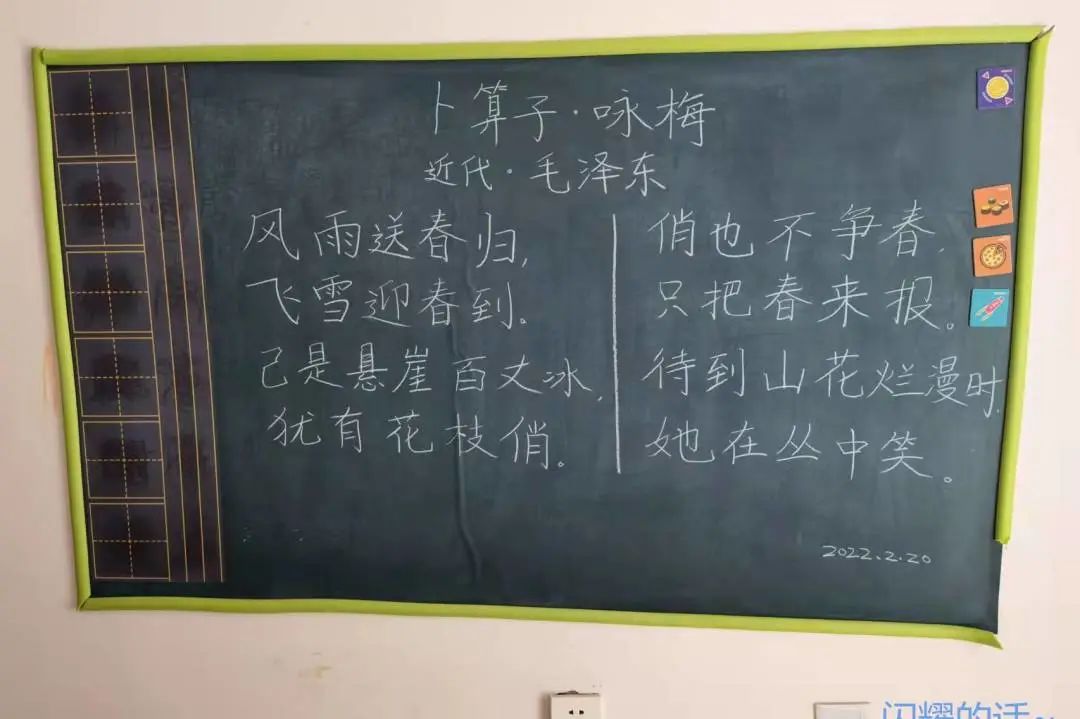 卜算子·咏梅
近代·毛泽东
风雨送春归,
飞雪迎春到。
己是悬崖百丈冰,
犹有花枝俏。
俏也不争春,
只把春来报。
待到山花烂漫时,
她在丛中笑。
2022.2.20